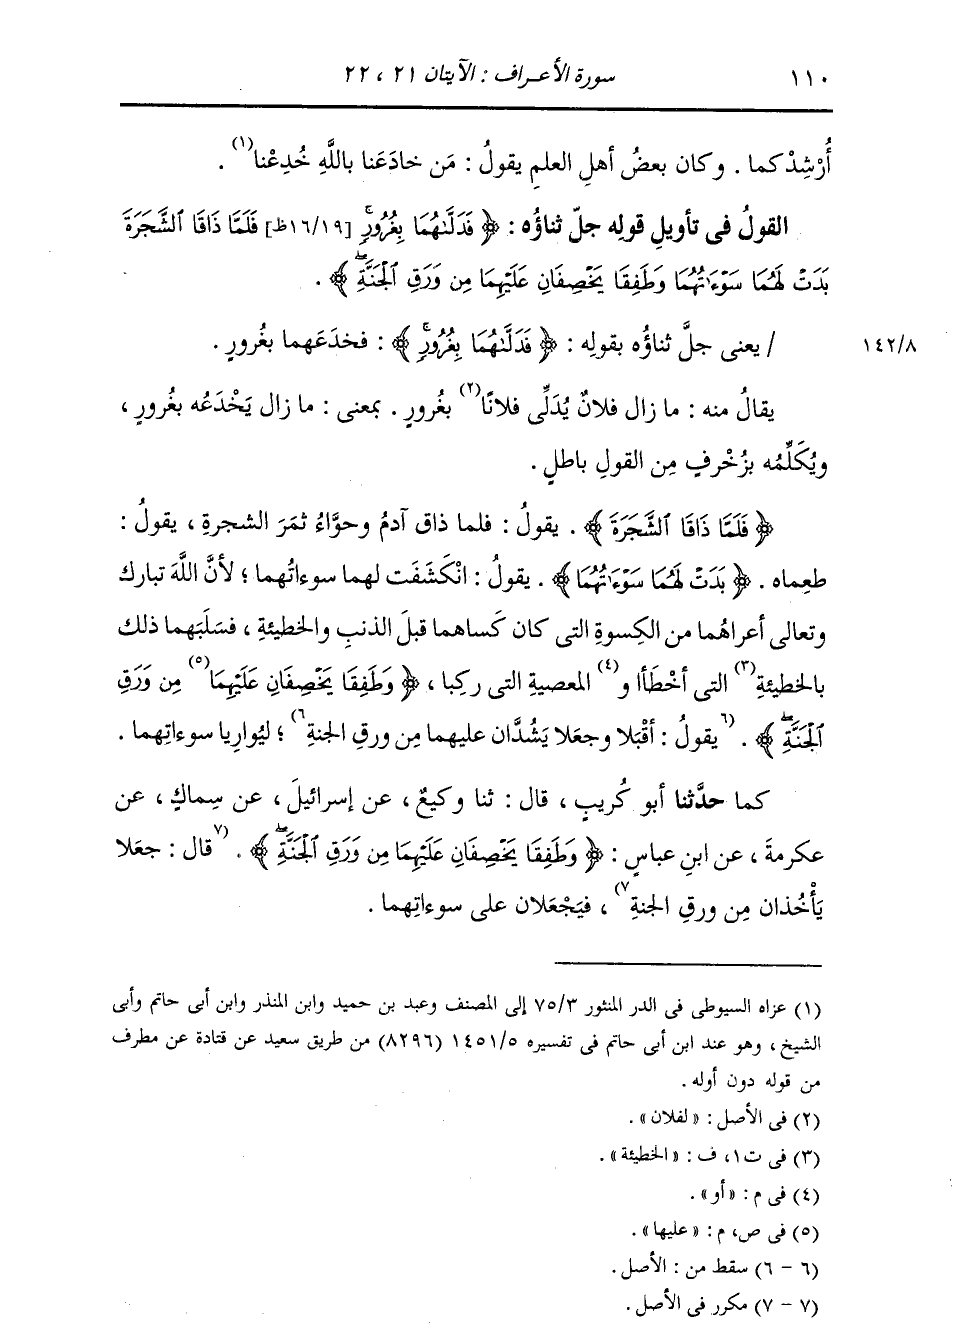 ١١٠ سورة الأعراف : الآيتان ٢١ ، ٢٢
أُرْشِدْكما . وكان بعضُ أهلِ العلمِ يقولُ : مَن خادَعَنا باللَّهِ خُدِعْنا(١) .
القولُ فى تأويلِ قولِه جلّ ثناؤُه : ﴿ فَدَلَّىٰهُمَا بِغُرُورٍۚ [١٦/١٩ظ] فَلَمَّا ذَاقَا ٱلشَّجَرَةَ
بَدَتْ لَهُمَا سَوْءَٰتُهُمَا وَطَفِقَا يَخْصِفَانِ عَلَيْهِمَا مِن وَرَقِ ٱلْجَنَّةِۖ ﴾ .
/ يعنى جلَّ ثناؤُه بقولِه : ﴿ فَدَلَّىٰهُمَا بِغُرُورٍۚ ﴾ : فخدَعَهما بغُرورٍ . ١٤٢/٨
يقالُ منه : ما زال فلانٌ يُدَلِّى فلانًا(٢) بغُرورٍ . بمعنى : ما زال يَخْدَعُه بغُرورٍ ،
ويُكَلِّمُه بزُخْرفٍ مِن القولِ باطلٍ .
﴿ فَلَمَّا ذَاقَا ٱلشَّجَرَةَ ﴾ . يقولُ : فلما ذاق آدمُ وحوَّاءُ ثمَرَ الشجرةِ ، يقولُ :
طعِماه . ﴿ بَدَتْ لَهُمَا سَوْءَٰتُهُمَا ﴾ . يقولُ : انْكَشَفَت لهما سوءاتُهما ؛ لأنَّ اللَّهَ تبارك
وتعالى أعراهُما من الكِسوةِ التى كان كَساهما قبلَ الذنبِ والخطيئةِ ، فسَلَبَهما ذلك
بالخطيئةِ(٣) التى أخْطَأا و(٤) المعصيةِ التى ركِبا ، ﴿ وَطَفِقَا يَخْصِفَانِ عَلَيْهِمَا(٥) مِن وَرَقِ
ٱلْجَنَّةِۖ ﴾ . (٦يقولُ : أقْبَلا وجعَلا يَشُدَّان عليهما مِن ورقِ الجنةِ٦) ؛ ليُوارِيا سوءاتِهما .
كما حدَّثنا أبو كُريبٍ ، قال : ثنا وكيعٌ ، عن إسرائيلَ ، عن سِماكٍ ، عن
عكرمةَ ، عن ابنِ عباسٍ : ﴿ وَطَفِقَا يَخْصِفَانِ عَلَيْهِمَا مِن وَرَقِ ٱلْجَنَّةِۖ ﴾ . (٧قال : جعَلا
يَأْخُذان مِن ورقِ الجنةِ٧) ، فيَجْعَلان على سوءاتِهما .
(١) عزاه السيوطى فى الدر المنثور ٧٥/٣ إلى المصنف وعبد بن حميد وابن المنذر وابن أبى حاتم وأبى
الشيخ ، وهو عند ابن أبى حاتم فى تفسيره ١٤٥١/٥ (٨٢٩٦) من طريق سعيد عن قتادة عن مطرف
من قوله دون أوله .
(٢) فى الأصل : « لفلان » .
(٣) فى ت١، ف : « الخطيئة » .
(٤) فى م : « أو » .
(٥) فى ص، م : « عليها » .
(٦ - ٦) سقط من : الأصل .
(٧ - ٧) مكرر فى الأصل .